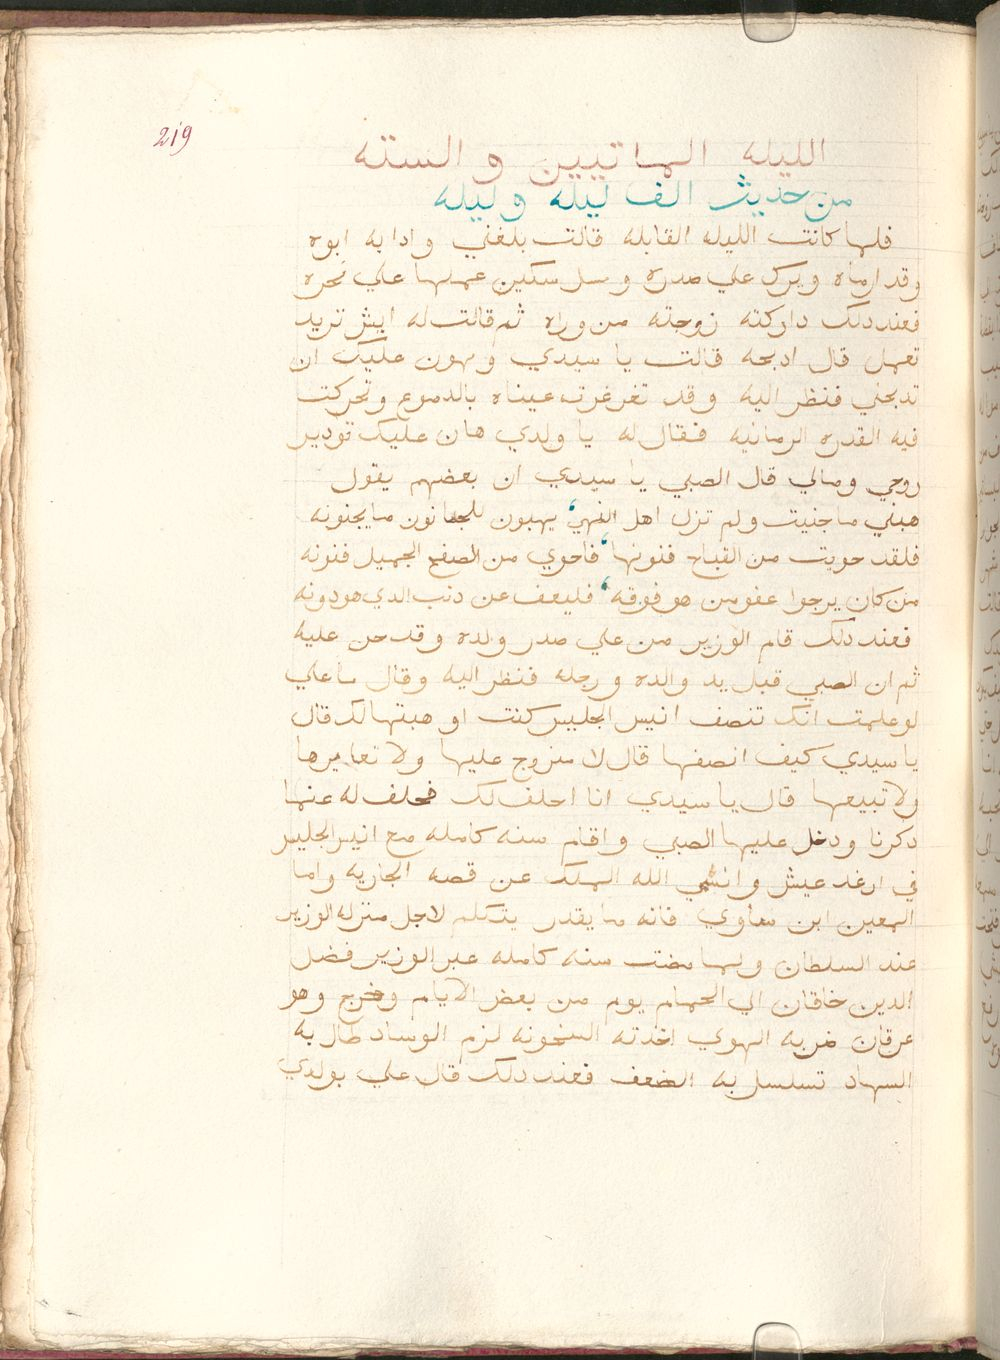 219
الليله الماتيين والسته
من حديث الف ليله وليله
فلما كانت الليله القابله قالت بلغني وادا به ابوه
وقد ارماه وبرك علي صدره وسل سكين عملها علي نحره
فعند دلك داركته زوجته من وراه ثم قالت له ايش تريد
تعمل قال ادبحه قالت يا سيدي ويهون عليك ان
تدبحني فنظر اليه وقد تغرغرت عيناه بالدموع وتحركت
فيه القدره الرمانيه فقال له يا ولدي هان عليك تودير
روحي ومالي قال الصبي يا سيدي ان بعضهم يقول
هبني ما جنيت ولم تزل اهل النهي يهبون للجانون ما يجنونه
فلقد حويت من القباح فنونها فاحوي من الصفح الجميل فنونه
من كان يرجوا عفو من هو فوقه فليعف عن دنب الدي هو دونه
فعند دلك قام الوزير من علي صدر ولده وقد حن عليه
ثم ان الصبي قبل يد والده ورجله فنظر اليه وقال ما علي
لو علمت انك تنصف انيس الجليس كنت اوهبتها لك قال
يا سيدي كيف انصفها قال لا متزوج عليها ولا تعايرها
ولا تبيعها قال يا سيدي انا احلف لك فحلف له عنما
دكرنا ودخل عليها الصبي واقام سنه كامله مع انيس الجليس
في ارغد عيش وانسي الله الملك عن قصه الجاريه واما
المعين ابن ساوي فانه ما يقدر يتكلم لاجل منزله الوزير
عند السلطان ولما مضت سنه كامله عبر الوزير فضل
الدين خاقان الي الحمام يوم من بعض الايام وخرج وهو
عرقان ضربه الهوي اخدته السخونه لزم الوساد طال به
السهاد تسلسل به الضعف فعند دلك قال علي بولدي